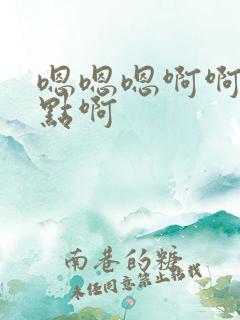 嗯嗯嗯啊啊
點啊
南巷的糖
未经同意禁止转载